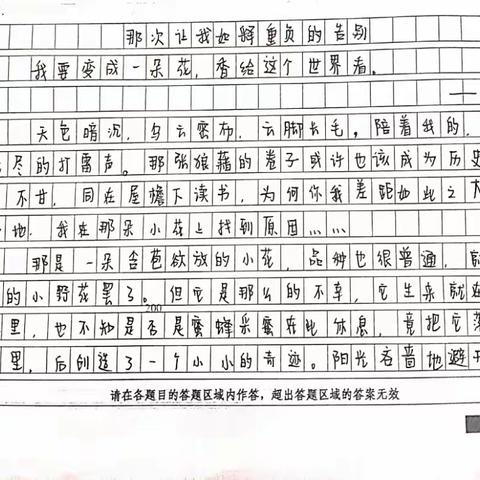 那次让我如释重负的告别
我要变成一朵花，香给这个世界看。
——
天色暗沉，乌云密布，云脚长毛，陪着我的，
尽的打雷声。那张狼藉的卷子或许也该成为历史
不甘，同在屋檐下读书，为何你我差距如此之大
地，我在那朵小花上找到原因……
那是一朵含苞欲放的小花，品种也很普通，
的小野花罢了。但它是那么的不幸，它生来就
200
里，也不知是否是蜜蜂采蜜在此休息，竟把它落
里，后创造了一个小小的奇迹。阳光吝啬地避开
请在各题目的答题区域内作答，超出答题区域的答案无效